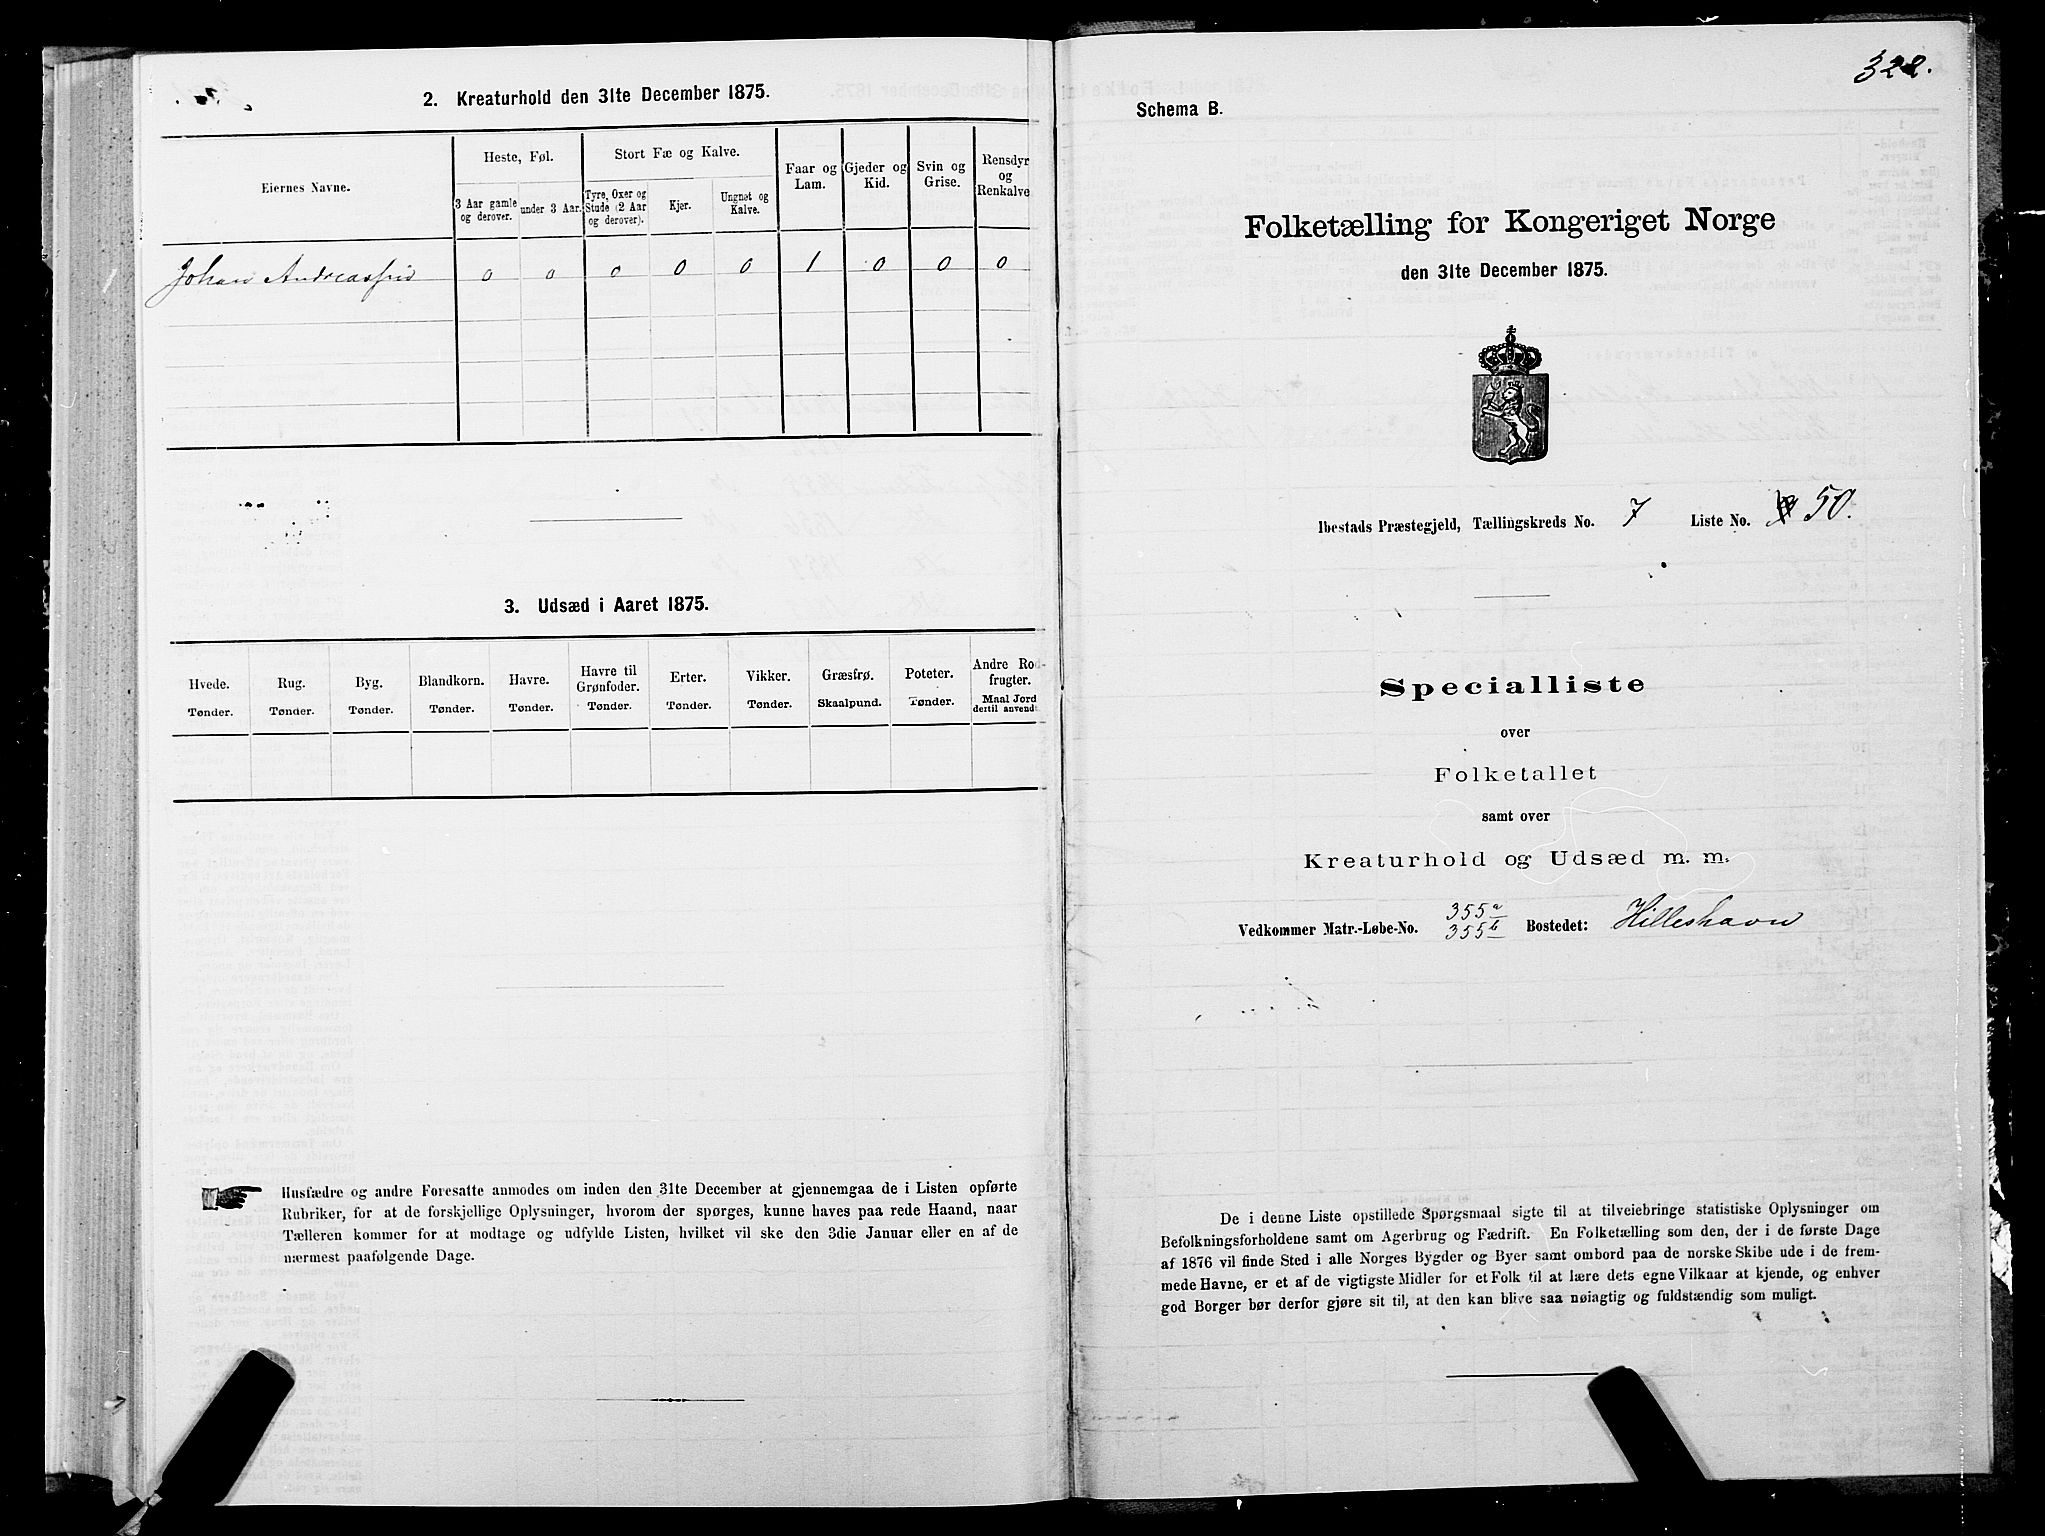 2. Kreaturhold den 31te December 1875.
Eiernes Navne.
Heste, Føl.
Stort Fæ og Kalve.
Faar og Lam.
Gjeder og Kid.
Svin og Grise.
Rensdyr og Renkalve
3 Aar gamle og derover.
under 3 Aar.
Tyre, Oxer og Stude (2 Aar og derover).
Kjer.
Ungnøt og Kalve.
Johan Andreassen 0 0 0 0 0 1 0 0 0
3. Udsæd i Aaret 1875.
Hvede. Rug. Byg. Blandkorn. Havre. Havre til Grønfoder. Erter. Vikker. Græsfrø. Poteter. Andre Rodfrugter.
Tønder. Tønder. Tønder. Tønder. Tønder. Tønder. Tønder. Tønder. Skaalpund. Tønder. Maal Jord dertil anvendt.
Husfædre og andre Foresatte anmodes om inden den 31te December at gjennemgaa de i Listen opførte
Rubriker, for at de forskjellige Oplysninger, hvorom der spørges, kunne haves paa rede Haand, naar
Tælleren kommer for at modtage og udfylde Listen, hvilket vil ske den 3die Januar eller en af de
nærmest paafølgende Dage.
322.
Schema B.
Folketælling for Kongeriget Norge
den 31te December 1875.
Ibestads Præstegjeld, Tællingskreds No. 7 Liste No. 50.
Specialliste
over
Folketallet
samt over
Kreaturhold og Udsæd m. m.
Vedkommer Matr.-Løbe-No. 355a 355b Bostedet: Hilleshavn
De i denne Liste opstillede Spørgsmaal sigte til at tilveiebringe statistiske Oplysninger om
Befolkningsforholdene samt om Agerbrug og Fædrift. En Folketælling som den, der i de første Dage
af 1876 vil finde Sted i alle Norges Bygder og Byer samt ombord paa de norske Skibe ude i de frem-
mede Havne, er et af de vigtigste Midler for et Folk til at lære dets egne Vilkaar at kjende, og enhver
god Borger bør derfor gjøre sit til, at den kan blive saa nøiagtig og fuldstændig som muligt.